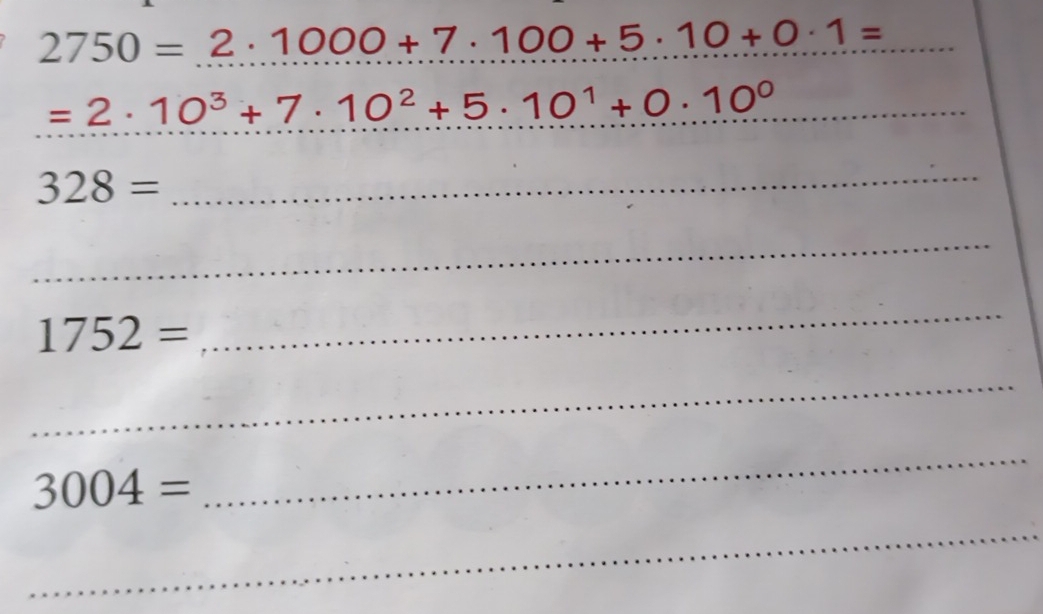 2750 = 2 · 1000 + 7 · 100 + 5 · 10 + 0 · 1 =
= 2 · 10³ + 7 · 10² + 5 · 10¹ + 0 · 10⁰
328 =
1752 =
3004 =